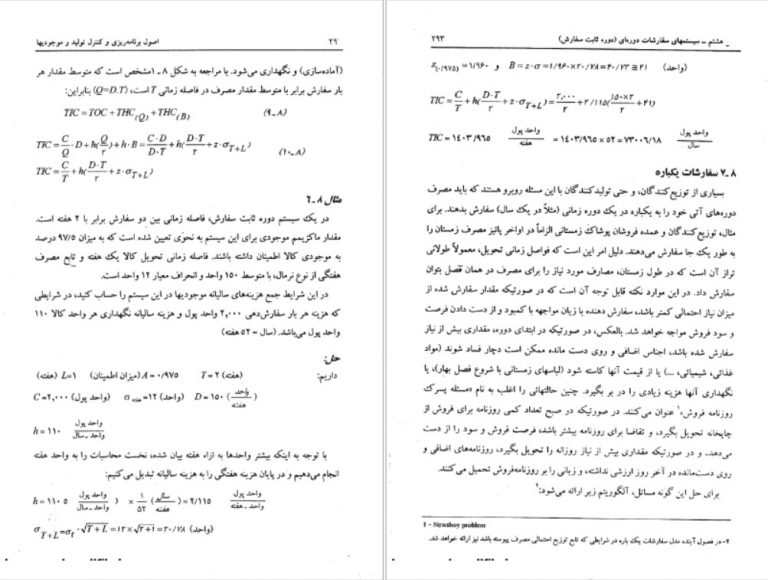 ۲۹ اصول برنامه‌ریزی و کنترل تولید و موجودیها
(آماده‌سازی) و نگهداری می‌شود. با مراجعه به شکل ۸ ـ ۱ مشخص است که متوسط مقدار هر
بار سفارش برابر با متوسط مقدار مصرف در فاصله زمانی T است، (Q=D.T) بنابراین:
TIC = TOC + THC(Q) + THC(B) (۸ـ۹)
TIC = C/Q · D + h(Q/۲) + h · B = C·D/D·T + h(D·T/۲ + z·σT+L) (۸ـ۱۰)
TIC = C/T + h(D·T/۲ + z·σT+L)
مثال ۸ ـ ۶
در یک سیستم دوره ثابت سفارش، فاصله زمانی بین دو سفارش برابر با ۲ هفته است.
مقدار ماکزیمم موجودی برای این سیستم به نحوی تعیین شده است که به میزان ۹۷/۵ درصد
به موجودی کالا اطمینان داشته باشند. فاصله زمانی تحویل کالا یک هفته و تابع مصرف
هفتگی از نوع نرمال، با متوسط ۱۵۰ واحد و انحراف معیار ۱۲ واحد است.
در این شرایط جمع هزینه‌های سالیانه موجودیها در این سیستم را حساب کنید، در شرایطی
که هزینه هر بار سفارش‌دهی ۲,۰۰۰ واحد پول و هزینه سالیانه نگهداری هر واحد کالا ۱۱۰
واحد پول می‌باشد. (سال = ۵۲ هفته)
حل:
داریم: (هفته) T = ۲ (میزان اطمینان) A = ۰/۹۷۵ (هفته) L=۱
C = ۲,۰۰۰ (واحد پول) σ هفته = ۱۲ (واحد) D = ۱۵۰ (واحد/هفته)
h = ۱۱۰ واحد پول/واحد ـ سال
با توجه به اینکه بیشتر واحدها به ازاء هفته بیان شده، نخست محاسبات را به واحد هفته
انجام می‌دهیم و در پایان هزینه هفتگی را به هزینه سالیانه تبدیل می‌کنیم:
h = ۱۱۰ (واحد پول/واحد ـ سال) × ۱/۵۲ (سال/هفته) = ۲/۱۱۵ واحد پول/واحد ـ هفته
σT+L = σt · √T+L = ۱۲ × √۲+۱ = ۲۰/۷۸ (واحد)
هشتم ـ سیستمهای سفارشات دوره‌ای (دوره ثابت سفارش) ۲۹۳
z(۰/۹۷۵) = ۱/۹۶۰ و B = z·σ = ۱/۹۶×۲۰/۷۸ = ۴۰/۷۳ ≅ ۴۱ (واحد)
TIC = C/T + h(D·T/۲ + z·σT+L) = ۲,۰۰۰/۲ + ۲/۱۱۵(۱۵۰×۲/۲ + ۴۱)
TIC = ۱۴۰۳/۹۶۵ واحد پول/هفته = ۱۴۰۳/۹۶۵ × ۵۲ = ۷۳۰۰۶/۱۸ واحد پول/سال
۸ ـ ۷ سفارشات یکباره
بسیاری از توزیع‌کنندگان، و حتی تولیدکنندگان با این مسئله روبرو هستند که باید مصرف
دوره‌های آتی خود را به یکباره در یک دوره زمانی (مثلاً در یک سال) سفارش بدهند. برای
مثال، توزیع‌کنندگان و عمده فروشان پوشاک زمستانی الزاماً در اواخر پائیز مصرف زمستان را
به طور یک جا سفارش می‌دهند. دلیل امر این است که فواصل زمانی تحویل، معمولاً طولانی
تراز آن است که در طول زمستان، مصارف مورد نیاز را برای مصرف در همان فصل بتوان
سفارش داد. در این موارد نکته قابل توجه آن است که در صورتیکه مقدار سفارش شده از
میزان نیاز احتمالی کمتر باشد، سفارش دهنده با زیان مواجهه با کمبود و از دست دادن فرصت
و سود فروش مواجه خواهد شد. بالعکس، در صورتیکه در ابتدای دوره، مقداری بیش از نیاز
سفارش شده باشد، اجناس اضافی و روی دست مانده ممکن است دچار فساد شوند (مواد
غذائی، شیمیائی، ...) یا از قیمت آنها کاسته شود (لباسهای زمستانی با شروع فصل بهار)، یا
نگهداری آنها هزینه زیادی را در بر بگیرد. چنین حالتهائی را اغلب به نام «مسئله پسرک
روزنامه فروش»۱ عنوان می‌کنند. در صورتیکه در صبح تعداد کمی روزنامه برای فروش از
چاپخانه تحویل بگیرد، و تقاضا برای روزنامه بیشتر باشد، فرصت فروش و سود را از دست
می‌دهد. و در صورتیکه مقداری بیش از نیاز روزانه را تحویل بگیرد، روزنامه‌های اضافی و
روی دست‌مانده در آخر روز ارزشی نداشته، و زیانی را بر روزنامه‌فروش تحمیل می‌کنند.
برای حل این گونه مسائل، الگوریتم زیر ارائه می‌شود:۲
1 - Newsboy problem
۲- در فصول آینده مدل سفارشات یک باره در شرایطی که تابع توزیع احتمالی مصرف پیوسته باشد نیز ارائه خواهد شد.